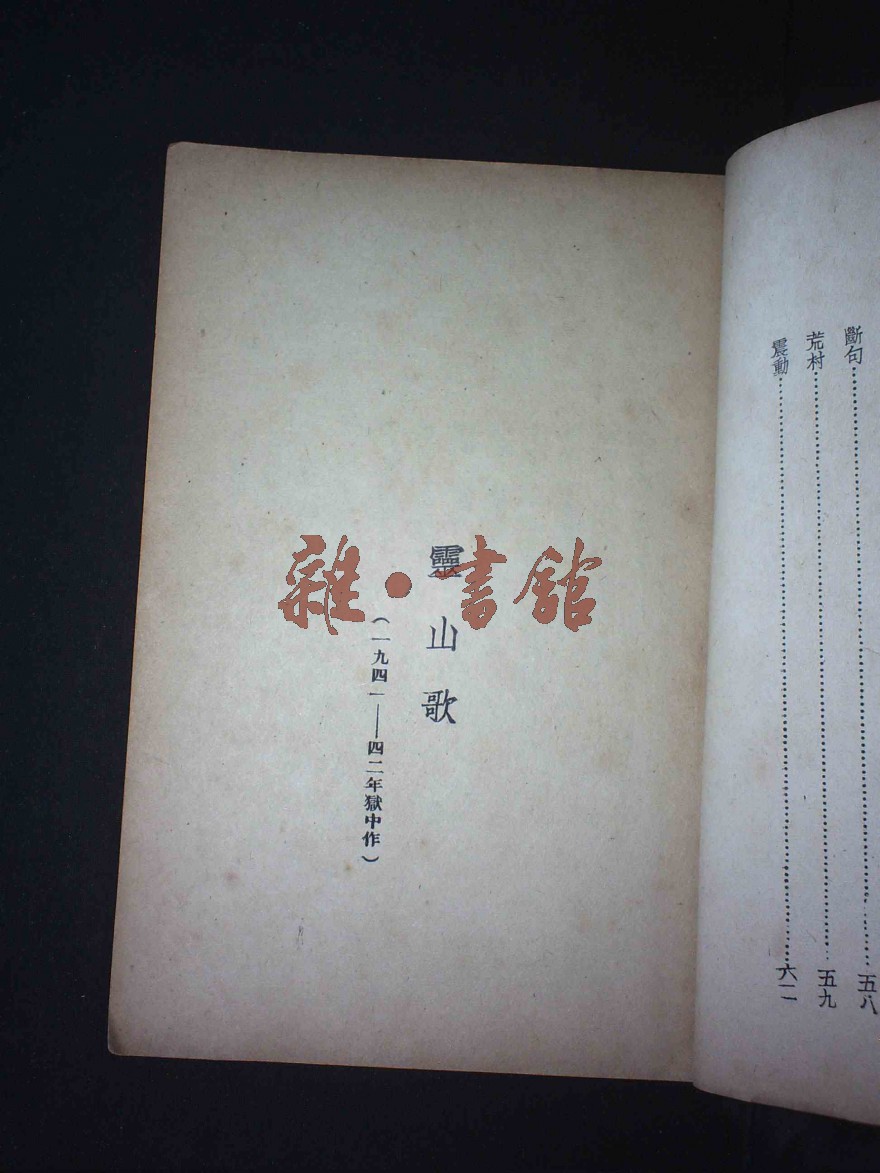 斷句……五八
荒村……五九
震動……六一
靈山歌
(一九四一——四二年獄中作)
雜·書館